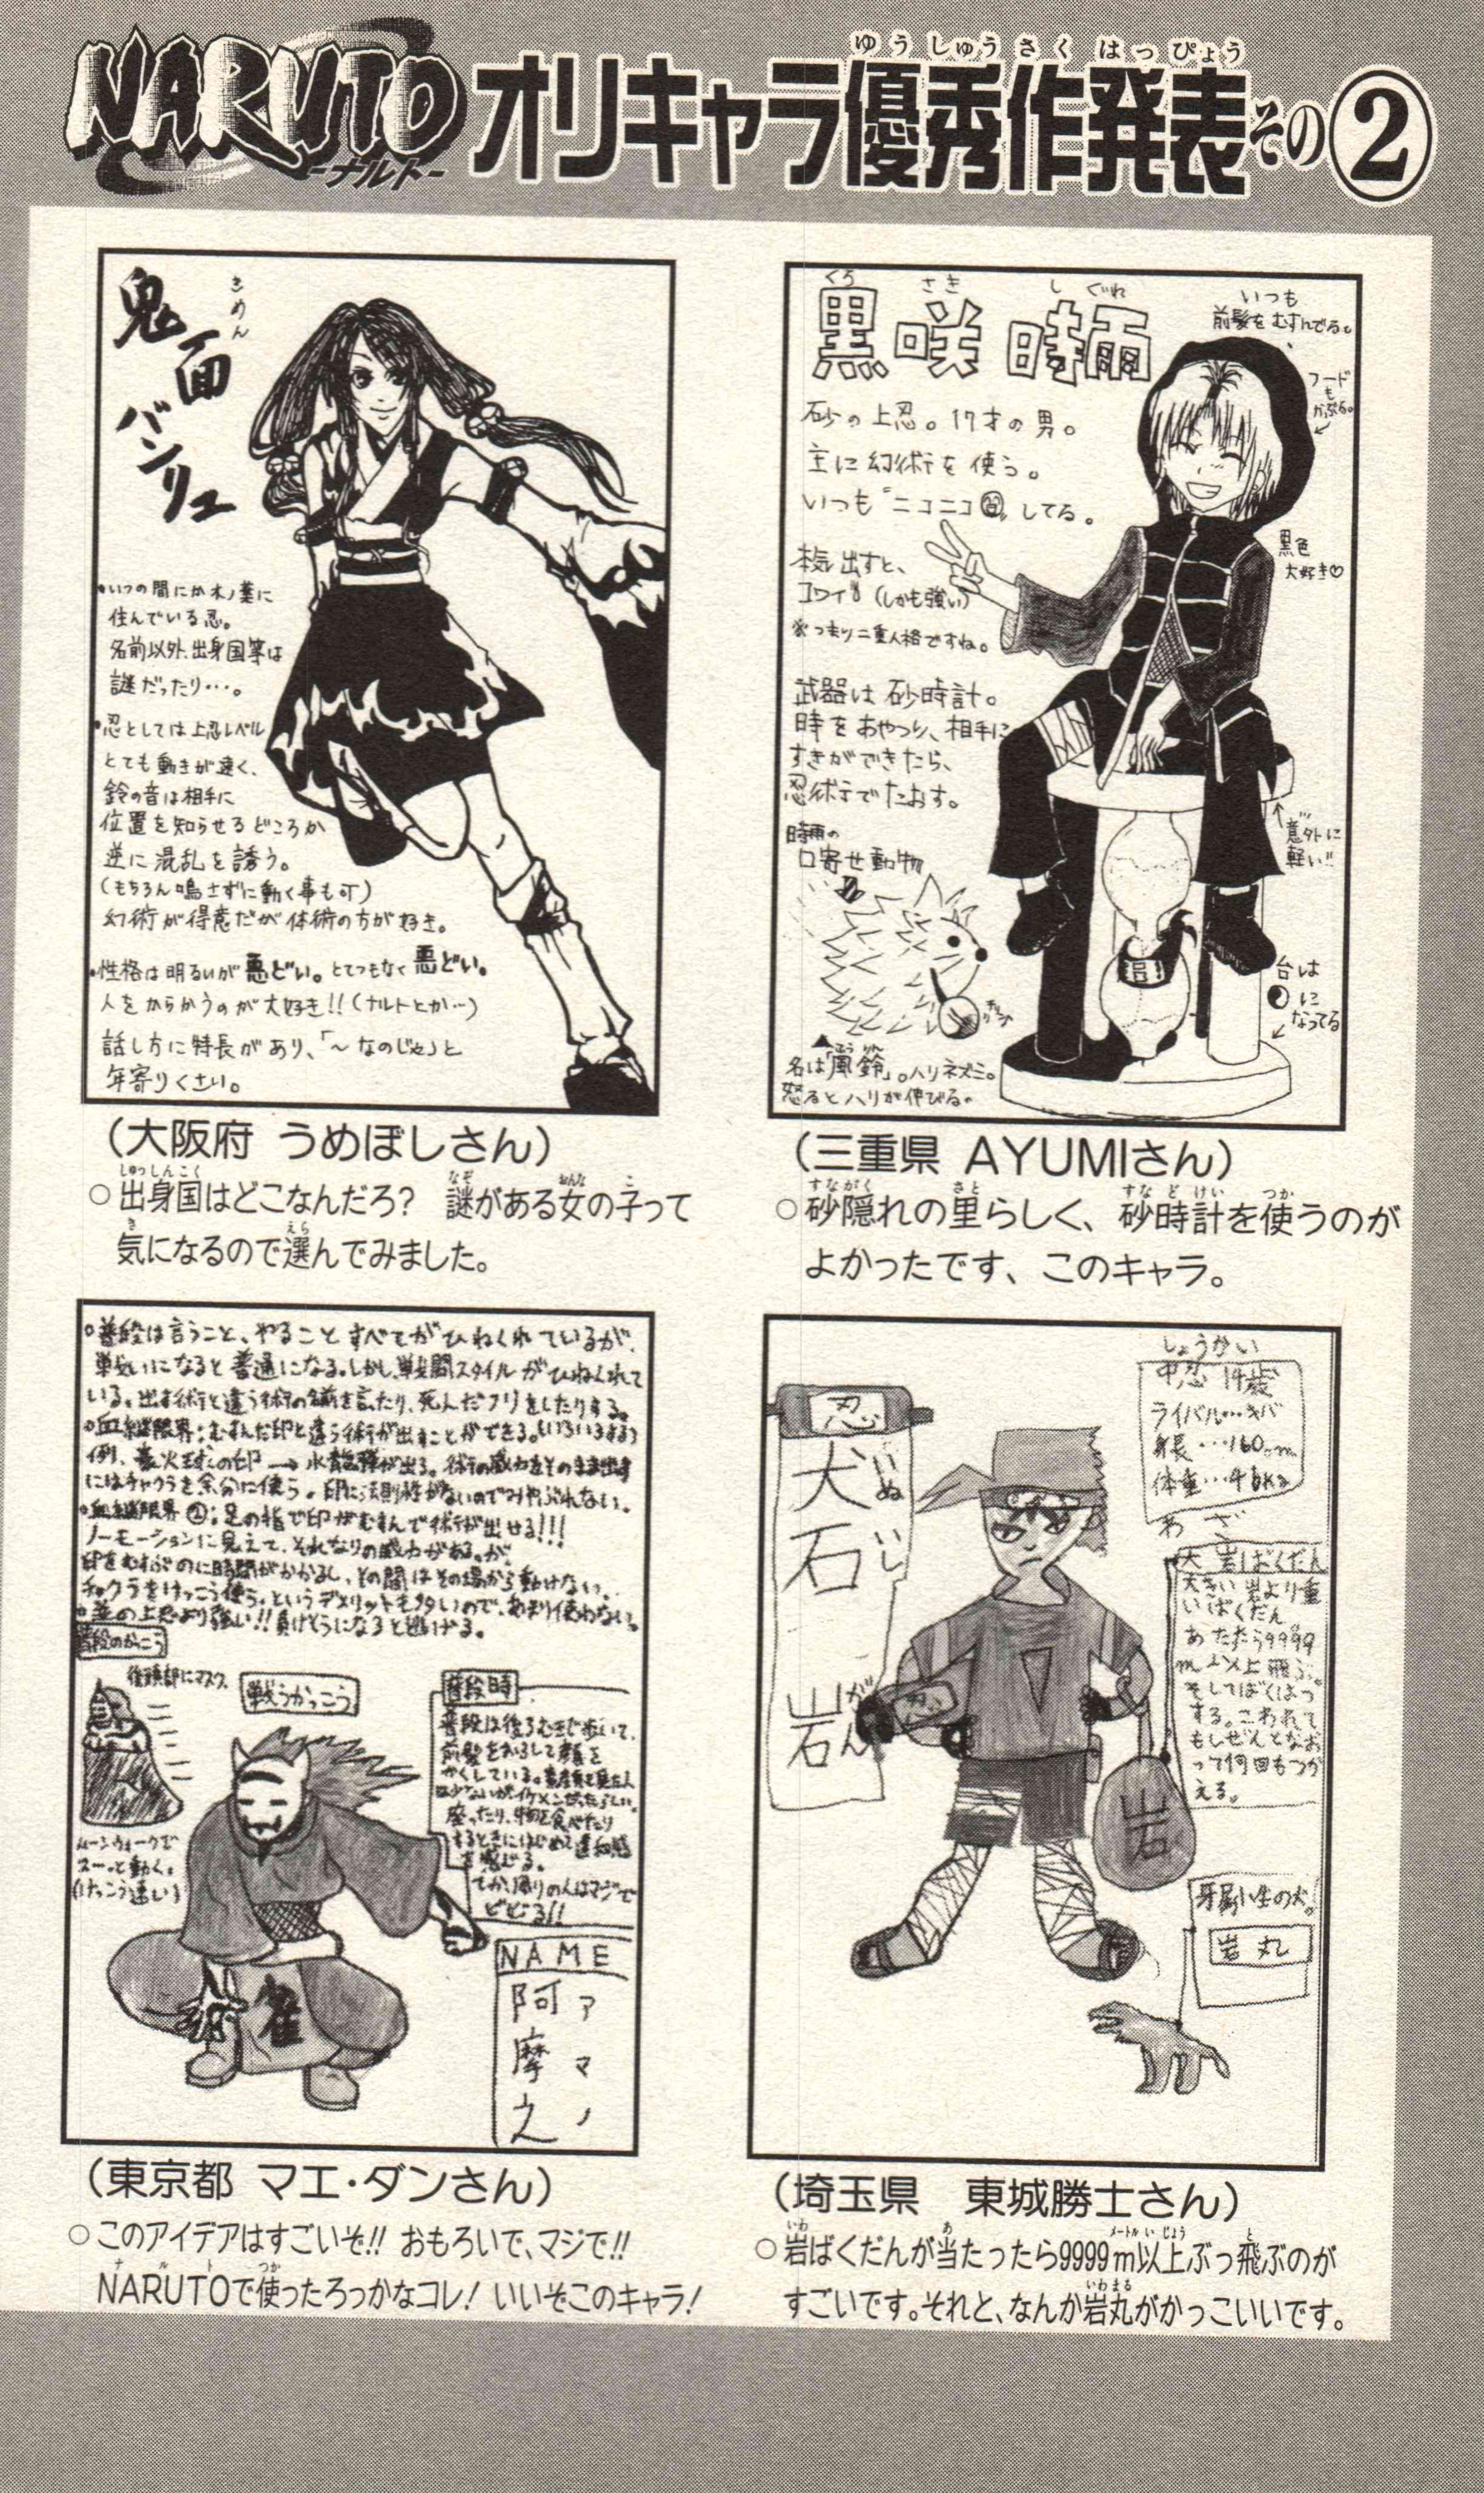 NARUTO
-ナルト-
オリキャラ優秀作発表その②
ゆうしゅうさくはっぴょう
鬼面バンリュ
きめん
・いつの間にか木ノ葉に
住んでいる忍。
名前以外、出身国等は
謎だったり…。
・忍としては上忍レベル
とても動きが速く、
鈴の音は相手に
位置を知らせるどころか
逆に混乱を誘う。
(もちろん鳴さずに動く事も可)
幻術が得意だが体術の方が好き。
・性格は明るいが悪どい。とてつもなく悪どい。
人をからかうのが大好き!!(ナルトとか…)
話し方に特長があり、「～なのじゃ」と
年寄りくさい。
(大阪府 うめぼしさん)
○出身国はどこなんだろ? 謎がある女の子って
気になるので選んでみました。
黒咲 時雨
くろ さき しぐれ
いつも
前髪をむすんでる。
フード
も
かぶる。
砂の上忍。17才の男。
主に幻術を使う。
いつも“ニコニコ”してる。
本気出すと、
コワイ!!(しかも強い)
※つまり二重人格ですね。
黒色
大好き♡
武器は砂時計。
時をあやつり、相手に
すきができたら、
忍術でたおす。
意外に
軽い!!
時雨の
口寄せ動物
台は
に
なってる
名は「風鈴」。ハリネズミ。
ふうりん
怒るとハリが伸びる。
(三重県 AYUMIさん)
○砂隠れの里らしく、砂時計を使うのが
よかったです、このキャラ。
○普段は言うこと、やることすべてがひねくれているが、
戦いになると普通になる。しかし、戦闘スタイルがひねくれて
いる。出す術と違う術の名前を言ったり、死んだフリをしたりする。
○血継限界:むすんだ印と違う術が出すことができる。
例、豪火球の印→水龍弾が出る。術の威力をそのまま出す
にはチャクラを余分に使う。印に法則性がないのでみやぶれない。
・血継限界②:足の指で印がむすんで術が出せる!!!
ノーモーションに見えて、それなりの威力がある。が、
印をむすぶのに時間がかかるし、その間はその場から動けない。
チャクラをけっこう使う。というデメリットも多いので、あまり使わない。
・並の上忍より強い!!負けそうになると逃げる。
普段のかっこう
後頭部にマスク
戦うかっこう
普段時
普段は後ろむきで歩いて、
前髪をおろして顔を
かくしている。素顔を見た人
は少ないがイケメンだったらしい。
座ったり、物を食べたり
するときにはじめて違和感
を感じる。
てか、周りの人はマジで
ビビる!!
ムーンウォークで
スーっと動く。
(けっこう速い)
雀
NAME
阿摩之
アマノ
(東京都 マエ・ダンさん)
○このアイデアはすごいぞ!! おもろいで、マジで!!
NARUTOで使ったろっかなコレ! いいぞこのキャラ!
忍
犬石 岩
いぬいし がん
しょうかい
中忍 14歳
ライバル…キバ
身長…160cm
体重…46kg
わざ
大岩ばくだん
大きい岩より重
いばくだん
あたったら9999
m以上飛ぶ。
そしてばくはつ
する。こわれて
もしぜんとなお
って何回もつか
える。
岩
岩丸
(埼玉県 東城勝士さん)
○岩ばくだんが当たったら9999m以上ぶっ飛ぶのが
すごいです。それと、なんか岩丸がかっこいいです。